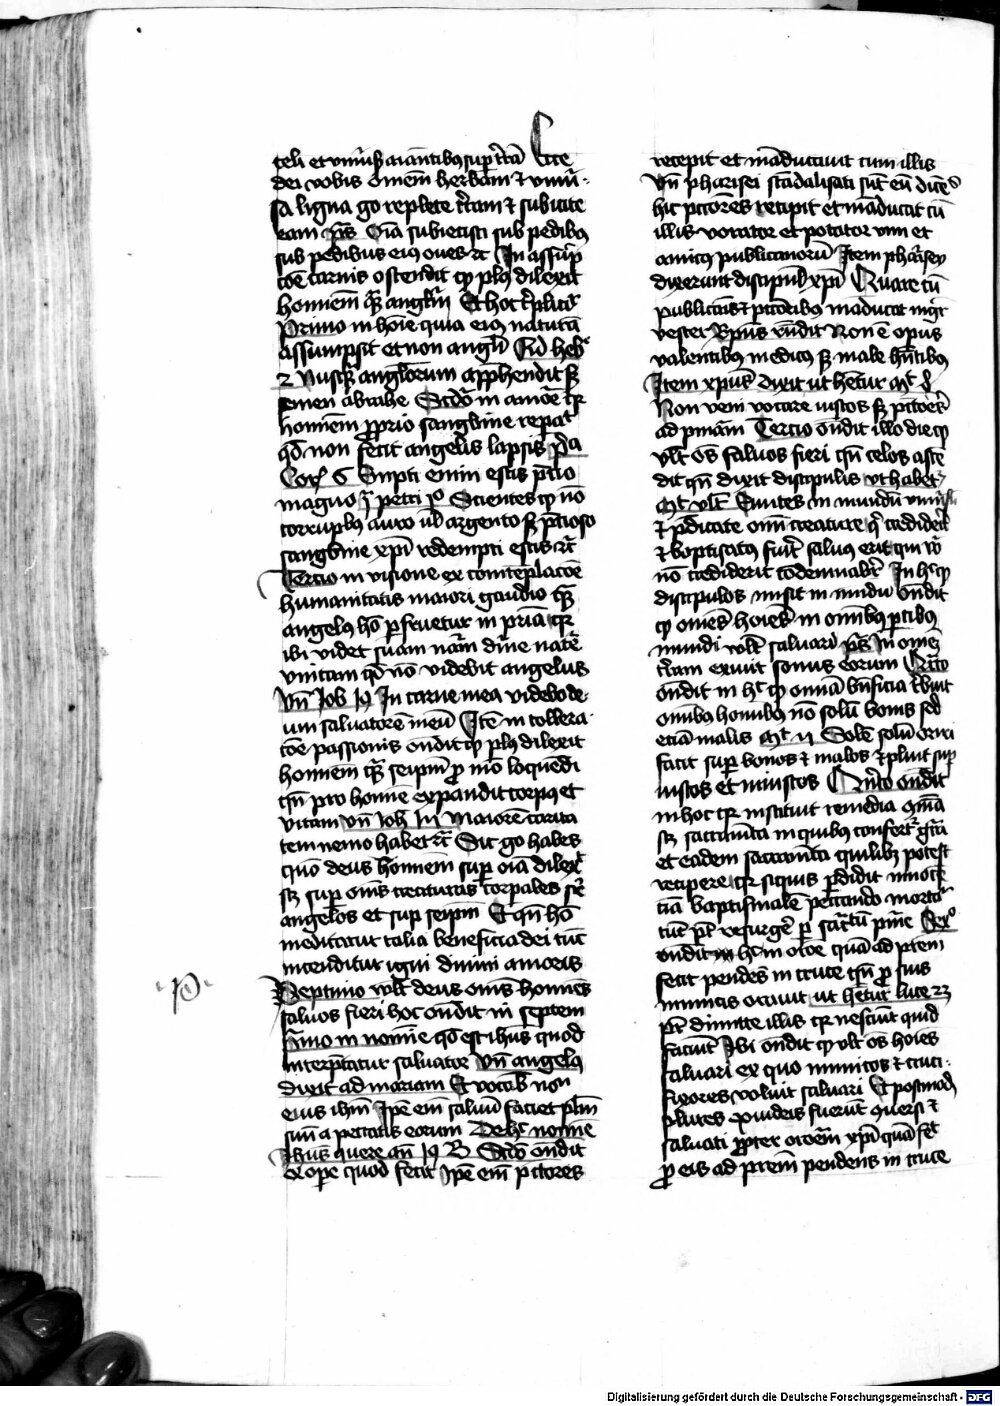 celi et vniuersis aiantibus sup terra Ecce
dei vobis omem herbam et vniuer
sa ligna go replete terram et subicite
eam ps Oia subiecisti sub pedibus
sub pedibus eius oues etc In assup
coe carnis ostendit quod plus dilexit
hominem quam anglum Et hoc tripliciter
Primo in hoie quia eius naturam
assumpsit et non angeli Ad heb
2 Nusquam anglorum apphendit sed
semen abrahe Secundo in amore quia
hominem proprio sanguine reparat
quod non fecit angelis lapsis pa
Cor 6 Empti enim estis precio
magno i petri po Scientes quod non
corruptibus auro vel argento sed precioso
sanguine xpi redempti estis etc
Tercio in visione ex contemplacoe
humanitatis maiori gaudio quam
angelus homo perfruetur in patria quia
ibi videt suam naturam diuine nature
vnitam quod non videbit angelus
Vnde Job 19 In carne mea videbo de
um saluatorem meum Item in tollera
coe passionis ondit quod plus dilexit
hominem quam seipm pro modo loquendi
quando pro homine expandit corpus et
vitam vnde Joh Maiorem carita
tem nemo habet etc Sic go habes
quomodo deus hominem super oia dilexit
scilicet super omnes creaturas corpales super
angelos et sup seipm Et quando homo
meditatur talia beneficia dei tunc
incenditur igni diuini amoris
·P·
Septimo vult deus omnes homines
saluos fieri hoc ondit in septem
Primo in nomine quod est ihus quod
interpretatur saluator Vnde angelus
dixit ad mariam Et vocabis nomen
eius ihm Ipse enim saluum faciet plm
suum a peccatis eorum De hoc nomine
Ihus quere 19 B Secundo ondit
ex ope quod fecit Ipse enim pctores
recepit et manducauit cum illis
Vnde pharisei scandalisati sunt eum dicentes
hic pctores recipit et manducat cum
illis vorator et potator vini et
amicus publicanorum Item pharisey
dixerunt discipulis xpi Quare cum
publicanis et pctoribus manducat mgr
vester Xpus rndit Non est opus
valentibus medicus sed male hntibus
Item xpus dixit ut hetur mt 8
Non veni vocare iustos sed pctores
ad pniam Tercio ondit illo die quo
vlt os saluos fieri quando celos ascen
dit quando dixit discipulis vt habetur
mt vlt Euntes in mundum vniuersum
et predicate omni creature qui crediderit
et baptisatus fuerit saluus erit qui vero
non crediderit condemnabitur In hoc quod
discipulos misit in mundum ondit
quod omnes hoies in omnibus partibus
mundi vult saluari ps In omnem
terram exiuit sonus eorum Quarto
ondit in hoc quod omnia beneficia tribuit
omnibus hominibus non solum bonis sed
eciam malis mt Solem solum oriri
facit super bonos et malos et pluit super
iustos et iniustos Quinto ondit
in hoc quia instituit remedia omnia
scilicet sacramenta in quibus confertur gratia
et eadem sacramenta quilibet potest
recipere quia siquis perdidit innocen
ciam baptismalem peccando morta
liter potest resurgere per sacramentum pnie Sexto
ondit in hoc in oracione quam ad patrem
fecit pendens in cruce quando pro suis
inimicis orauit ut hetur luce 23
pater dimitte illis quia nesciunt quid
faciunt Ibi ondit quod vlt os hoies
saluari ex quo inimicos et cruci
fixores voluit saluari Et postmodum
plures ex iudeis fuerunt conuersi et
saluati propter oracionem xpi quam fecit
pro eis ad patrem pendens in cruce
Digitalisierung gefördert durch die Deutsche Forschungsgemeinschaft - DFG